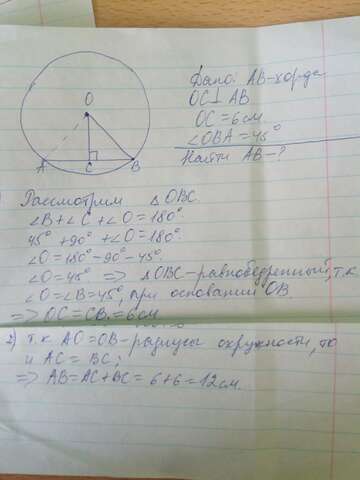 O
A C B
Дано: AB-хорда
OC⊥AB
OC=6см
∠OBA=45°
Найти AB-?
Рассмотрим △OBC.
∠B+∠C+∠O=180°
45°+90°+∠O=180°
∠O=180°-90°-45°
∠O=45° => △OBC-равнобедренный, т.к.
∠O=∠B=45°, при основании OB.
=> OC=CB=6см
2) т.к. AO=OB-радиусы окружности, то
и AC=BC;
=> AB=AC+BC=6+6=12см.